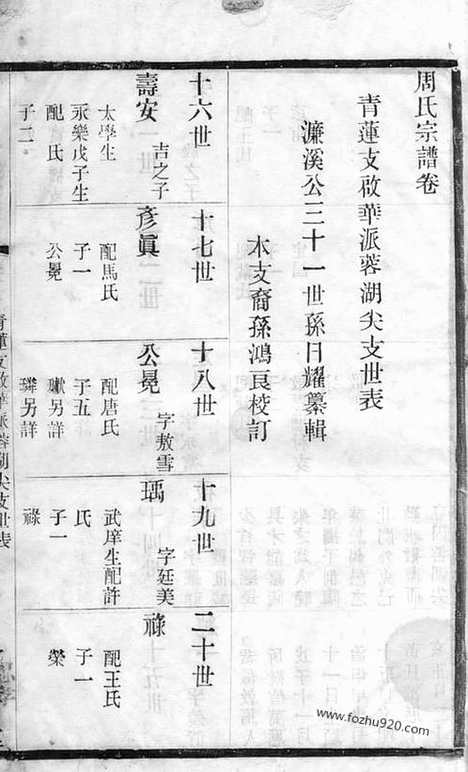 周氏宗譜卷
青蓮支啟華派蓉湖尖支世表
濂溪公三十一世孫日耀纂輯
本支裔孫鴻良校訂
十六世
壽安 吉之子
太學生
永樂戊子生
配 氏
子二
十七世
彥眞
配馬氏
子一
公冕
十八世
公冕 字敖雪
配唐氏
子五
另詳
璘另詳
十九世
瑀 字廷美
武庠生配許
氏
子一
祿
二十世
祿
配王氏
子一
榮
青蓮支啟華派蓉湖尖支世表
www.fozhu920.com